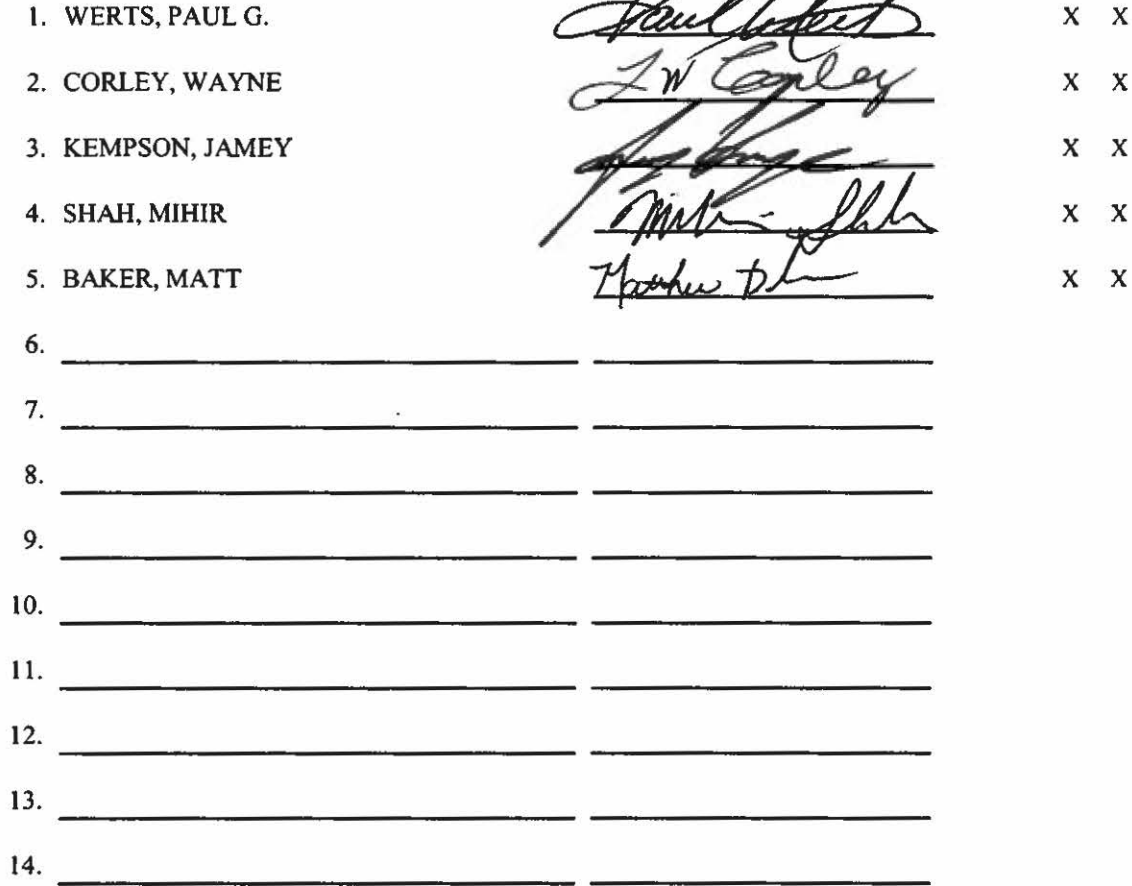 1. WERTS, PAUL G. Paul Werts X X
2. CORLEY, WAYNE J W Corley X X
3. KEMPSON, JAMEY X X
4. SHAH, MIHIR Mihir Shah X X
5. BAKER, MATT Matthew X X
6.
7.
8.
9.
10.
11.
12.
13.
14.